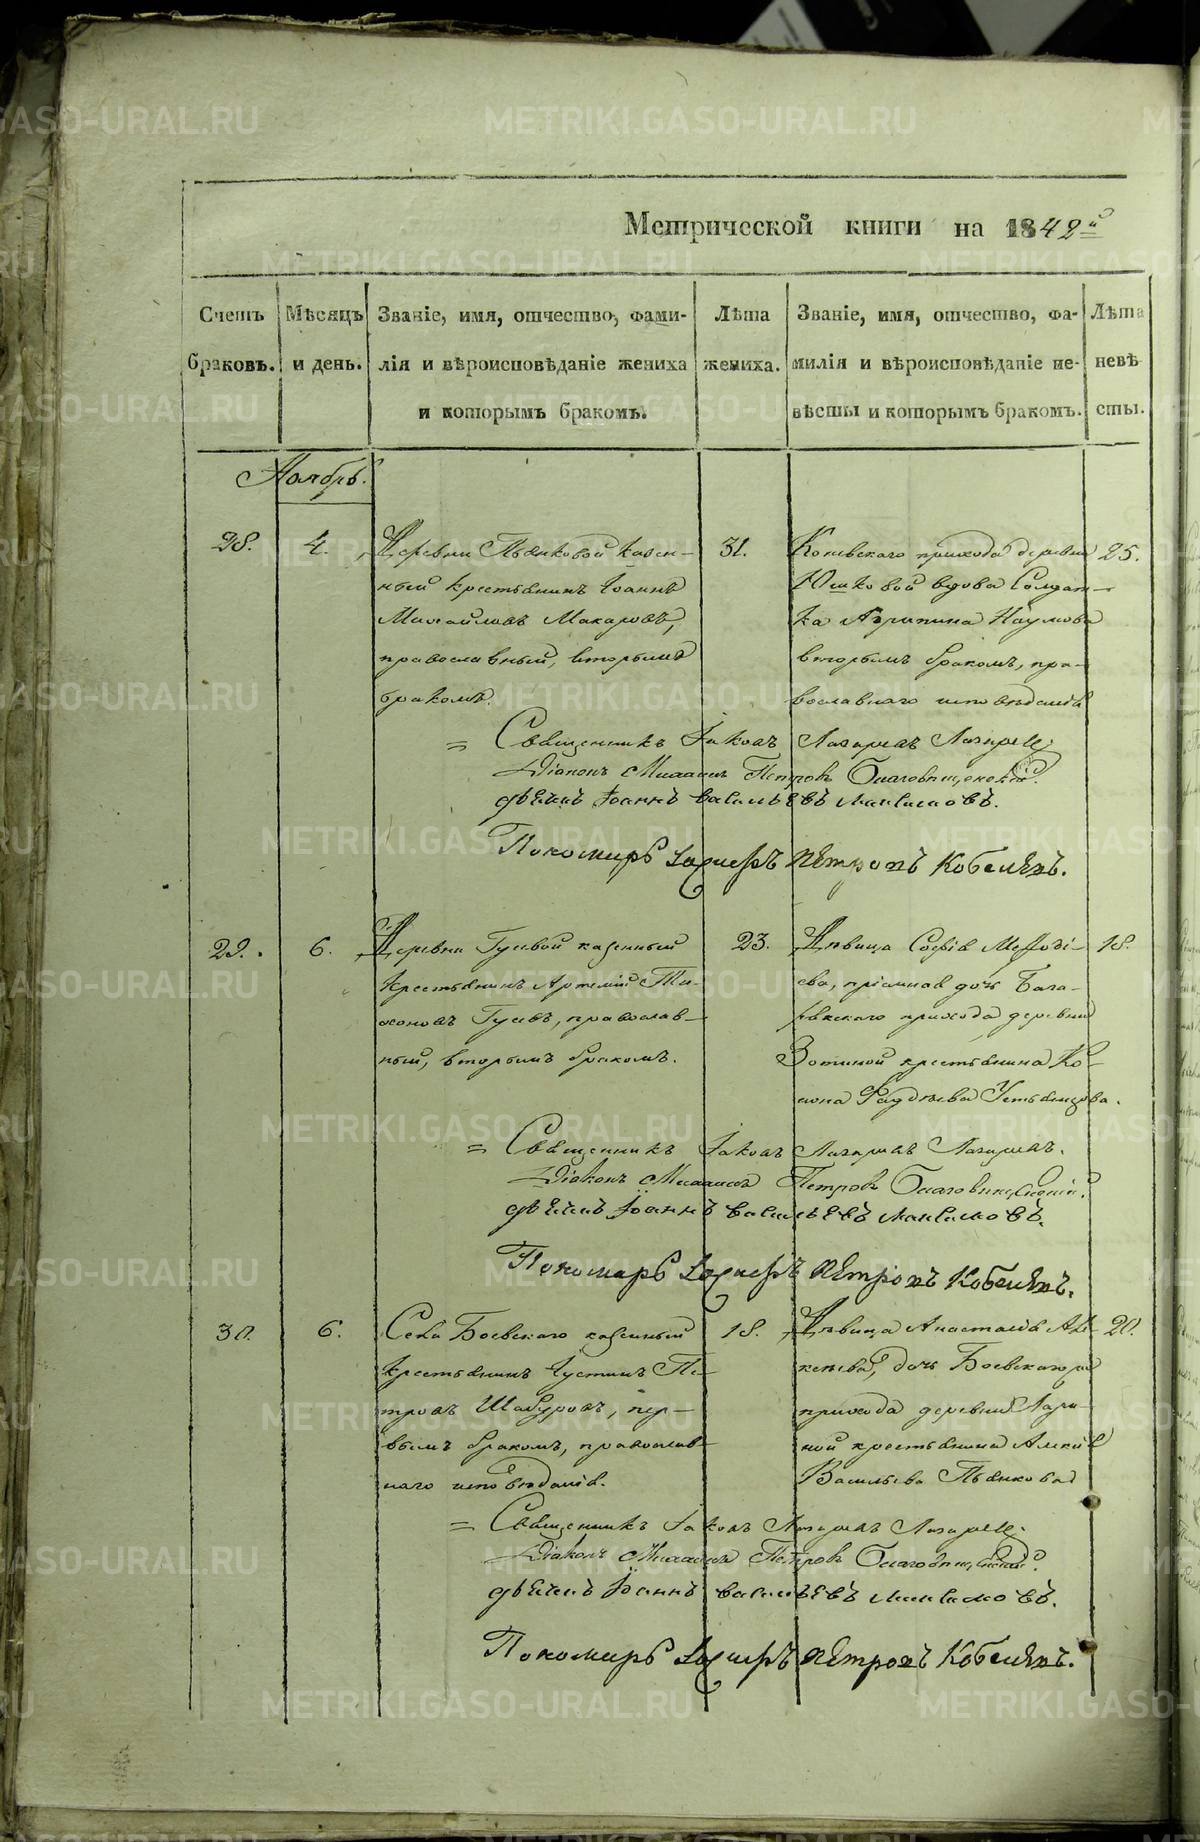 Метрической книги на 1842й
Счетъ браковъ.
Мѣсяцъ и день.
Званіе, имя, отчество, фамилія и вѣроисповѣданіе жениха и которымъ бракомъ.
Лѣта жениха.
Званіе, имя, отчество, фамилія и вѣроисповѣданіе невѣсты и которымъ бракомъ.
Лѣта невѣсты.
Ноябрь.
28.
4.
Деревни Пьянковой казен-
ный крестьянинъ Іоаннъ
Михайловъ Макаровъ,
православный, вторымъ
бракомъ.
31.
Коневскаго прихода деревни
Юшковой вдова Солдат-
ка Агрипина Наумова
вторымъ бракомъ, пра-
вославнаго исповѣданія
25.
Священникъ Іаковъ Лазаревъ Лазаревъ
Діаконъ Михаилъ Петровъ Благовѣщенскій.
дьячикъ Іоаннъ васильевъ
Пономарь Петровъ
29.
6.
Деревни Гусевой казенный
крестьянинъ Артемій Ти-
хоновъ Гусевъ, православ-
ный, вторымъ бракомъ.
23.
Дѣвица Софія Меѳоді-
ева, пріемная дочь Бага-
ряксаго прихода деревни
Зотиной крестьянина Ко-
нона Фаддѣева Устьянцова.
18.
Священникъ Іаковъ Лазаревъ Лазаревъ.
Діаконъ Михаилъ Петровъ Благовѣщенскій.
дьячикъ Іоаннъ васильевъ
Пономарь Петровъ
30.
6.
Села Боевскаго казенный
крестьянинъ Іустинъ Пе-
тровъ Шабуровъ, пер-
вымъ бракомъ, православ-
наго исповѣданія.
18.
Дѣвица Анастасія Але-
ксѣева, дочь Боевскагоже
прихода деревни
крестьянина Алексія
Васильева Пьянкова
20.
Священникъ Іаковъ Лазаревъ Лазаревъ.
Діаконъ Михаилъ Петровъ Благовѣщенскій.
дьячикъ Іоаннъ васильевъ
Пономарь Петровъ
METRIKI.GASO-URAL.RU